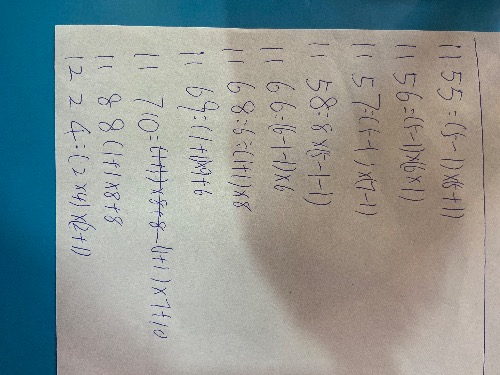 11 55=(5-1)x(5+1)
11 56=(5-1)x6x1)
11 57=(-1)x(7-1)
11 58=8x(5-1-1)
11 66=(6-1-1)x6
11 68=6÷(1+1)x8
11 69=(1+1)x9+6
11 710=(1+1)x7+10
11 88(1+1)x8+8
12 24=(2x4)x(2+1)